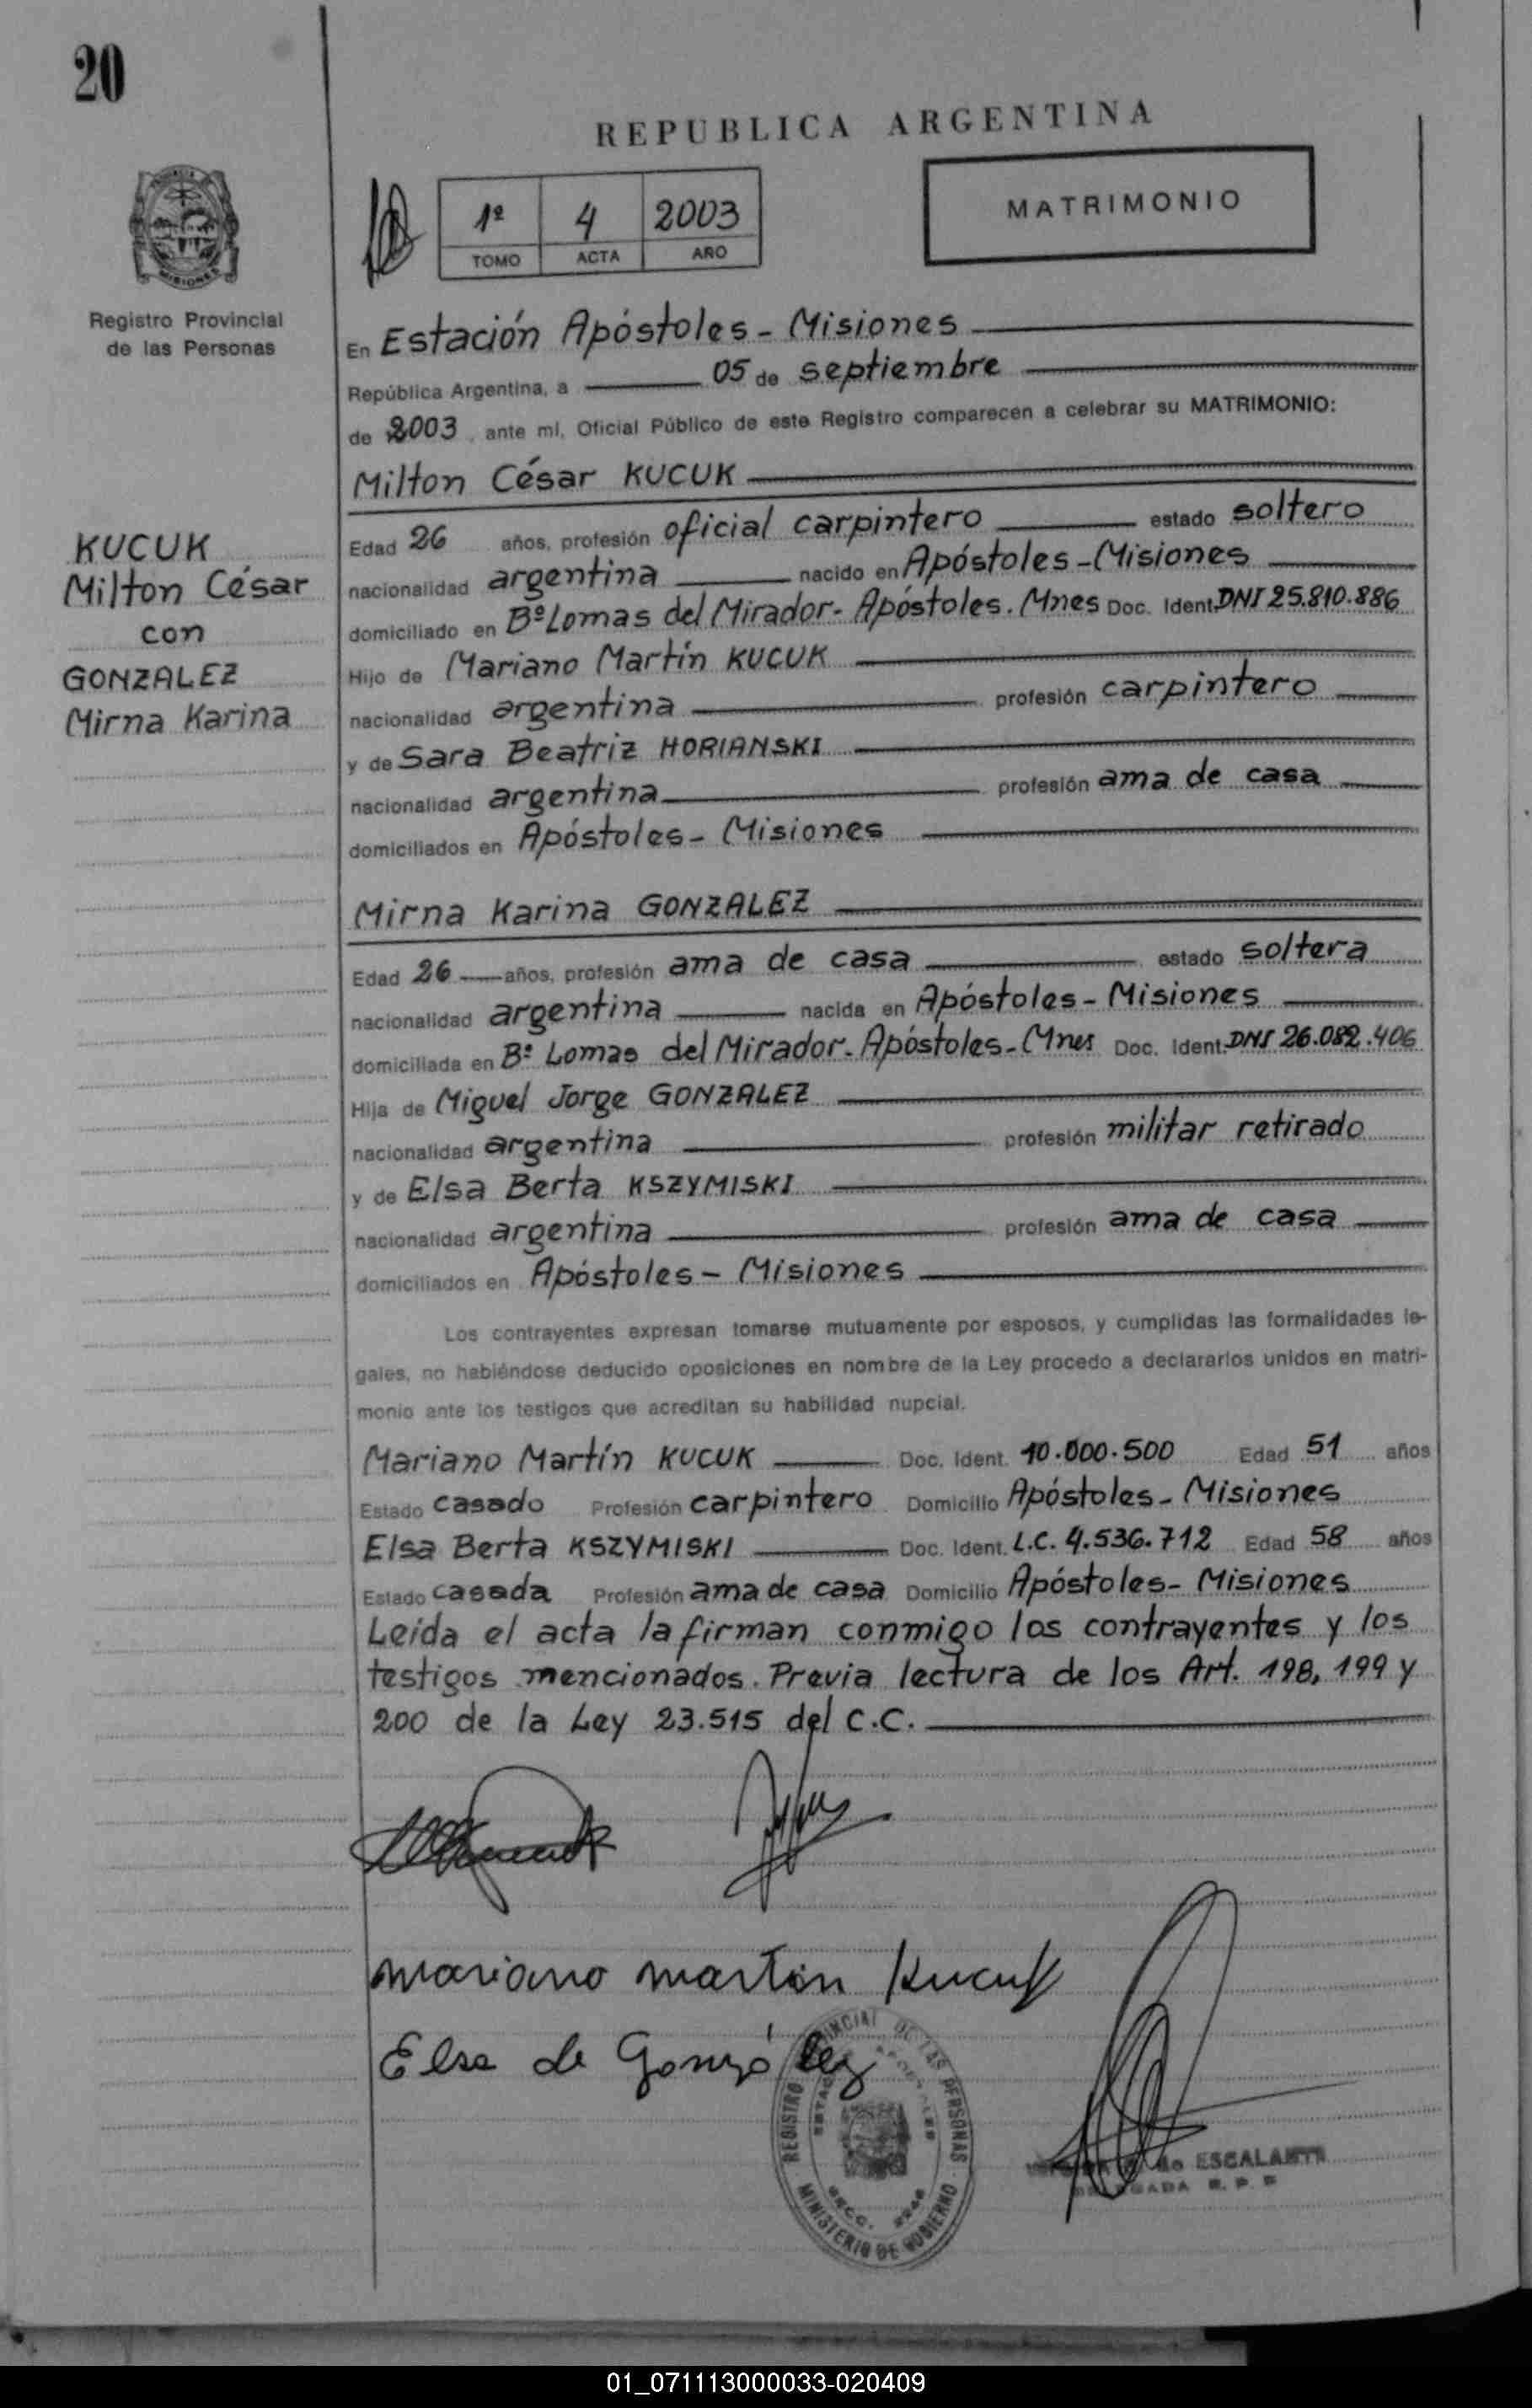 20
REPUBLICA ARGENTINA
1º 4 2003
TOMO ACTA AÑO
MATRIMONIO
MISIONES
Registro Provincial
de las Personas
En Estación Apóstoles - Misiones
República Argentina, a 05 de septiembre
de 2003, ante mí, Oficial Público de este Registro comparecen a celebrar su MATRIMONIO:
Milton César KUCUK
KUCUK
Milton César
con
GONZALEZ
Mirna Karina
Edad 26 años, profesión oficial carpintero estado soltero
nacionalidad argentina nacido en Apóstoles - Misiones
domiciliado en Bº Lomas del Mirador - Apóstoles. Mnes Doc. Ident. DNI 25.810.886
Hijo de Mariano Martín KUCUK
nacionalidad argentina profesión carpintero
y de Sara Beatriz HORIANSKI
nacionalidad argentina profesión ama de casa
domiciliados en Apóstoles - Misiones
Mirna Karina GONZALEZ
Edad 26 años, profesión ama de casa estado soltera
nacionalidad argentina nacida en Apóstoles - Misiones
domiciliada en Bº Lomas del Mirador - Apóstoles - Mnes Doc. Ident. DNI 26.082.406
Hija de Miguel Jorge GONZALEZ
nacionalidad argentina profesión militar retirado
y de Elsa Berta KSZYMISKI
nacionalidad argentina profesión ama de casa
domiciliados en Apóstoles - Misiones
Los contrayentes expresan tomarse mutuamente por esposos, y cumplidas las formalidades le-
gales, no habiéndose deducido oposiciones en nombre de la Ley procedo a declararlos unidos en matri-
monio ante los testigos que acreditan su habilidad nupcial.
Mariano Martín KUCUK Doc. Ident. 10.000.500 Edad 51 años
Estado casado Profesión carpintero Domicilio Apóstoles - Misiones
Elsa Berta KSZYMISKI Doc. Ident. L.C. 4.536.712 Edad 58 años
Estado casada Profesión ama de casa Domicilio Apóstoles - Misiones
Leída el acta la firman conmigo los contrayentes y los
testigos mencionados. Previa lectura de los Art. 198, 199 y
200 de la Ley 23.515 del C.C.
mariano martin Kucuk
Elsa de Gonzólez
REGISTRO PROVINCIAL DE LAS PERSONAS
MINISTERIO DE GOBIERNO
de ESCALANTE
01_071113000033-020409